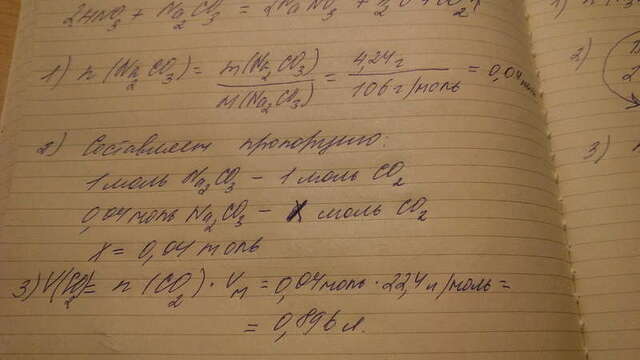 2HNO3 + Na2CO3 = 2NaNO3 +
1) n(Na2CO3) = m(Na2CO3) / M(Na2CO3) = 4,24 г / 106 г/моль = 0,04 моль
2) Составляем пропорцию:
1 моль Na2CO3 - 1 моль CO2
0,04 моль Na2CO3 - X моль CO2
x = 0,04 моль
3) V(CO2) = n(CO2) · Vm = 0,04 моль · 22,4 л/моль =
= 0,896 л.
1)
2)
3)